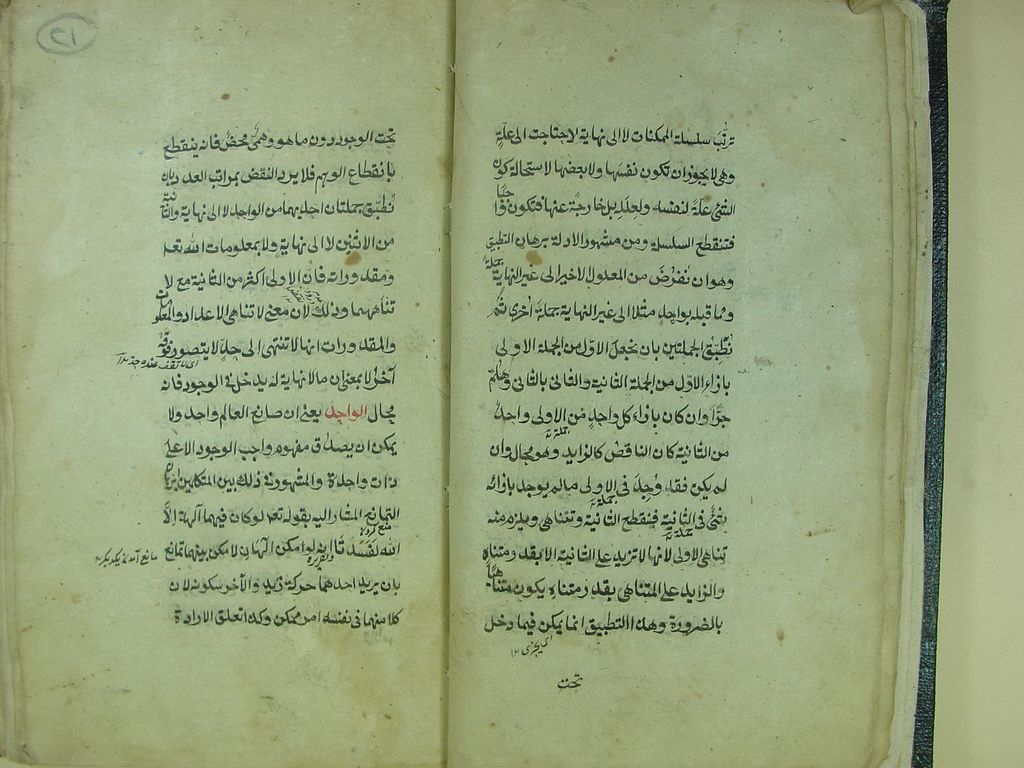 ترتّب سلسلة الممكنات لا الى نهاية لاحتاجت الى علّة
وهى لا يجوز ان تكون نفسها ولا بعضها لاستحالة كون
الشئ علّة لنفسه ولعلله بل خارجة عنها فتكون واجبا
فتنقطع السلسلة ومن مشهور الادلة برهان التطبيق
وهو ان نفرض من المعلول الاخير الى غير النهاية جملة
ومما قبله بواحد مثلا الى غير النهاية جملة اخرى ثم
نطبّق الجملتين بان نجعل الاوّل من الجملة الاولى
بازاء الاوّل من الجملة الثانية والثانى بالثانى وهلمّ
جرّا وان كان بازاء كل واحد من الاولى واحد
من الثانية كان الناقص كالزايد وهو محال وان
لم يكن فقد وجد فى الاولى ما لم يوجد بازائه
شئ فى الثانية فينقطع الثانية وتتناهى ويلزم منه
تناهى الاولى لانها لا تزيد على الثانية الا بقدر متناه
والزايد على المتناهى بقدر متناه يكون متناهيا
بالضرورة وهذا التطبيق انما يمكن فيما دخل
تحت
تحت الوجود دون ما هو وهمىّ محض فانه ينقطع
بانقطاع الوهم فلا يرد النقض بمراتب العدد بان
نطبّق جملتان احديهما من الواحد لا الى نهاية والثانية
من الاثنين لا الى نهاية ولا بمعلومات الله تعا
ومقدوراته فان الاولى اكثر من الثانية مع لا
تناهيهما وذلك لان معنى لا تناهى الاعداد والمعلومات
والمقدورات انها لا تنتهى الى حد لا يتصور فوقه
آخر لا بمعنى ان ما لا نهاية له يدخل فى الوجود فانه
محال الواحد يعنى ان صانع العالم واحد ولا
يمكن ان يصدق مفهوم واجب الوجود الا على
ذات واحدة والمشهور فى ذلك بين المتكلمين برهان
التمانع المشار اليه بقوله تعا لو كان فيهما آلهة الّا
الله لفسدتا انه لو امكن الهان لامكن بينهما تمانع
بان يريد احدهما حركة زيد والآخر سكونه لان
كلا منهما فى نفسه امر ممكن وكذا تعلق الارادة